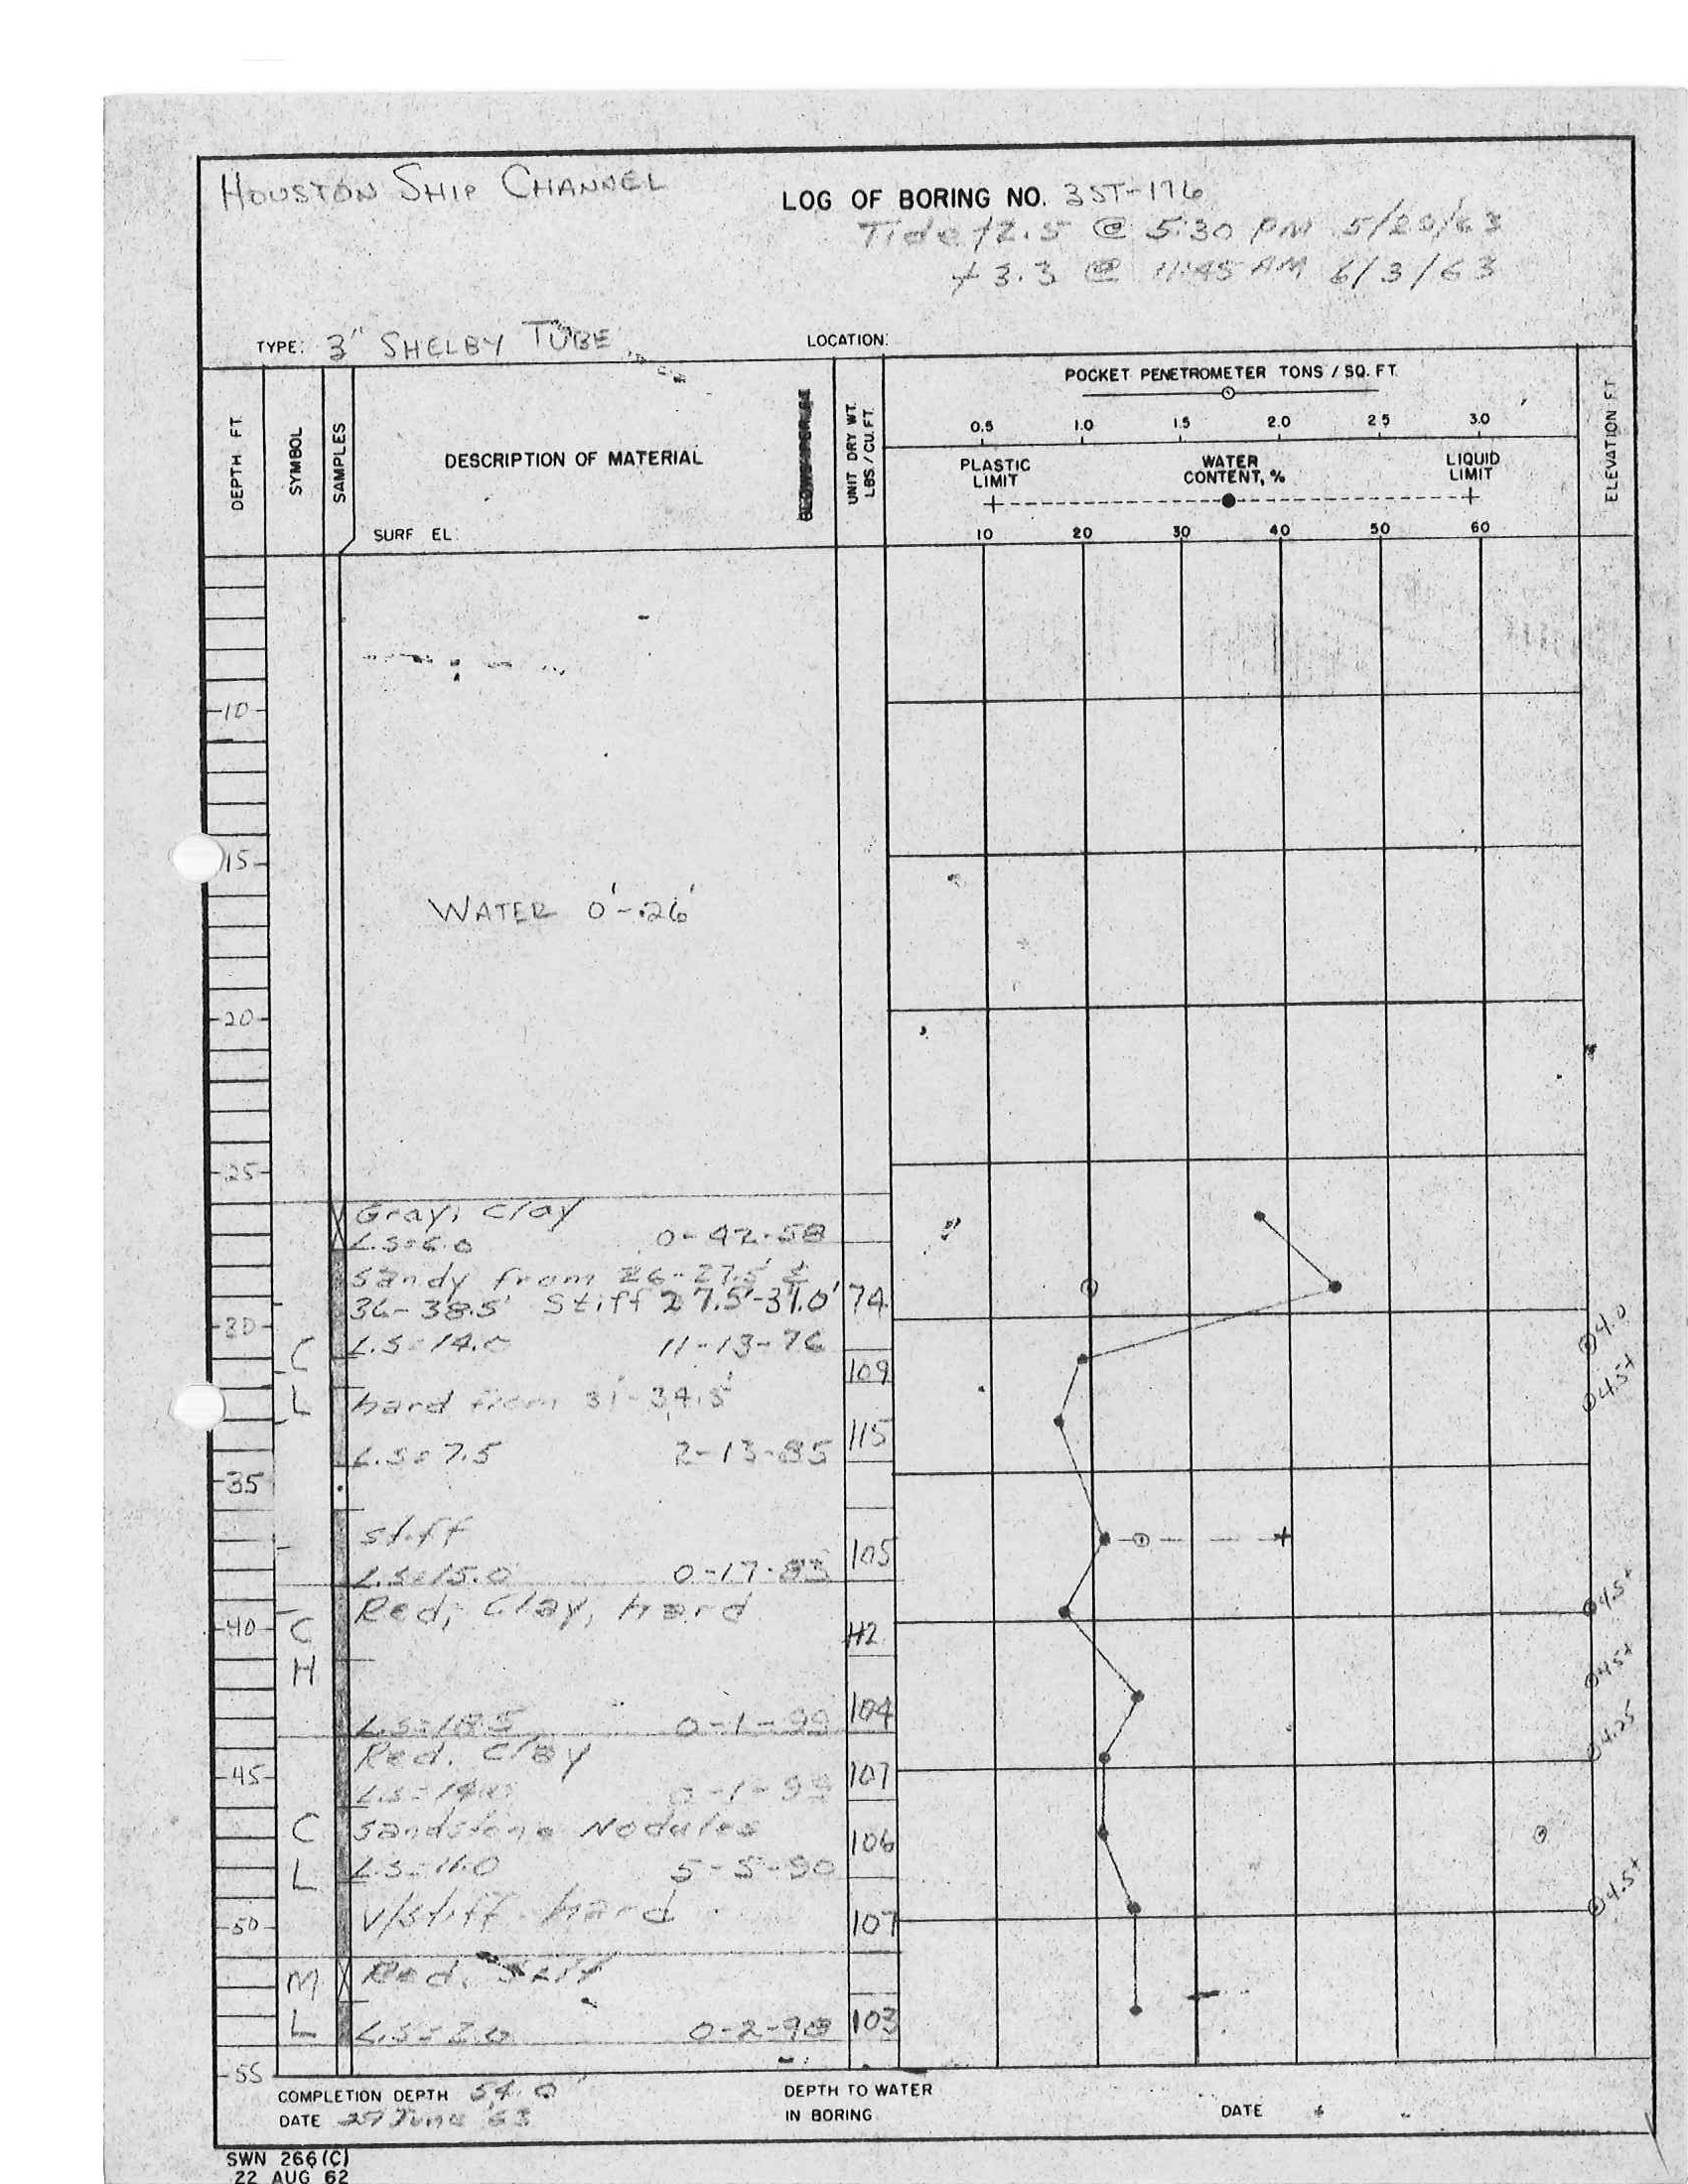 HOUSTON SHIP CHANNEL
LOG OF BORING NO. 3ST-176
Tide +2.5 @ 5:30 PM 5/28/63
+3.3 @ 11:45 AM 6/3/63
TYPE: 3" SHELBY TUBE
LOCATION:
POCKET PENETROMETER TONS / SQ. FT.
0.5 1.0 1.5 2.0 2.5 3.0
DEPTH FT.
SYMBOL
SAMPLES
DESCRIPTION OF MATERIAL
UNIT DRY WT. LBS / CU. FT.
ELEVATION FT.
PLASTIC LIMIT
WATER CONTENT, %
LIQUID LIMIT
SURF EL:
10 20 30 40 50 60
10
15
WATER 0'-26'
20
25
Gray, Clay
L.S=6.0 0-42-58
Sandy from 26-27.5' &
36-38.5' Stiff 27.5'-31.0' 74
30
4.0
C L
L.S=14.0 11-13-76
109
4.5+
hard from 31'-34.5'
115
L.S=7.5 2-13-85
35
stiff
105
L.S=15.0 0-17-83
Red, Clay, hard
4.5+
40
C H
112
4.5+
L.S=18.5 0-1-99
104
Red. Clay
4.25
45
107
L.S=14.0 0-1-99
C L
Sandstone Nodules
106
L.S=11.0 5-5-90
V/stiff-hard
4.5+
50
107
M L
Red, Silt
L.S=2.0 0-2-98 103
55
COMPLETION DEPTH 54.0'
DATE 27 June 63
DEPTH TO WATER
IN BORING
DATE
SWN 266(C)
22 AUG 62